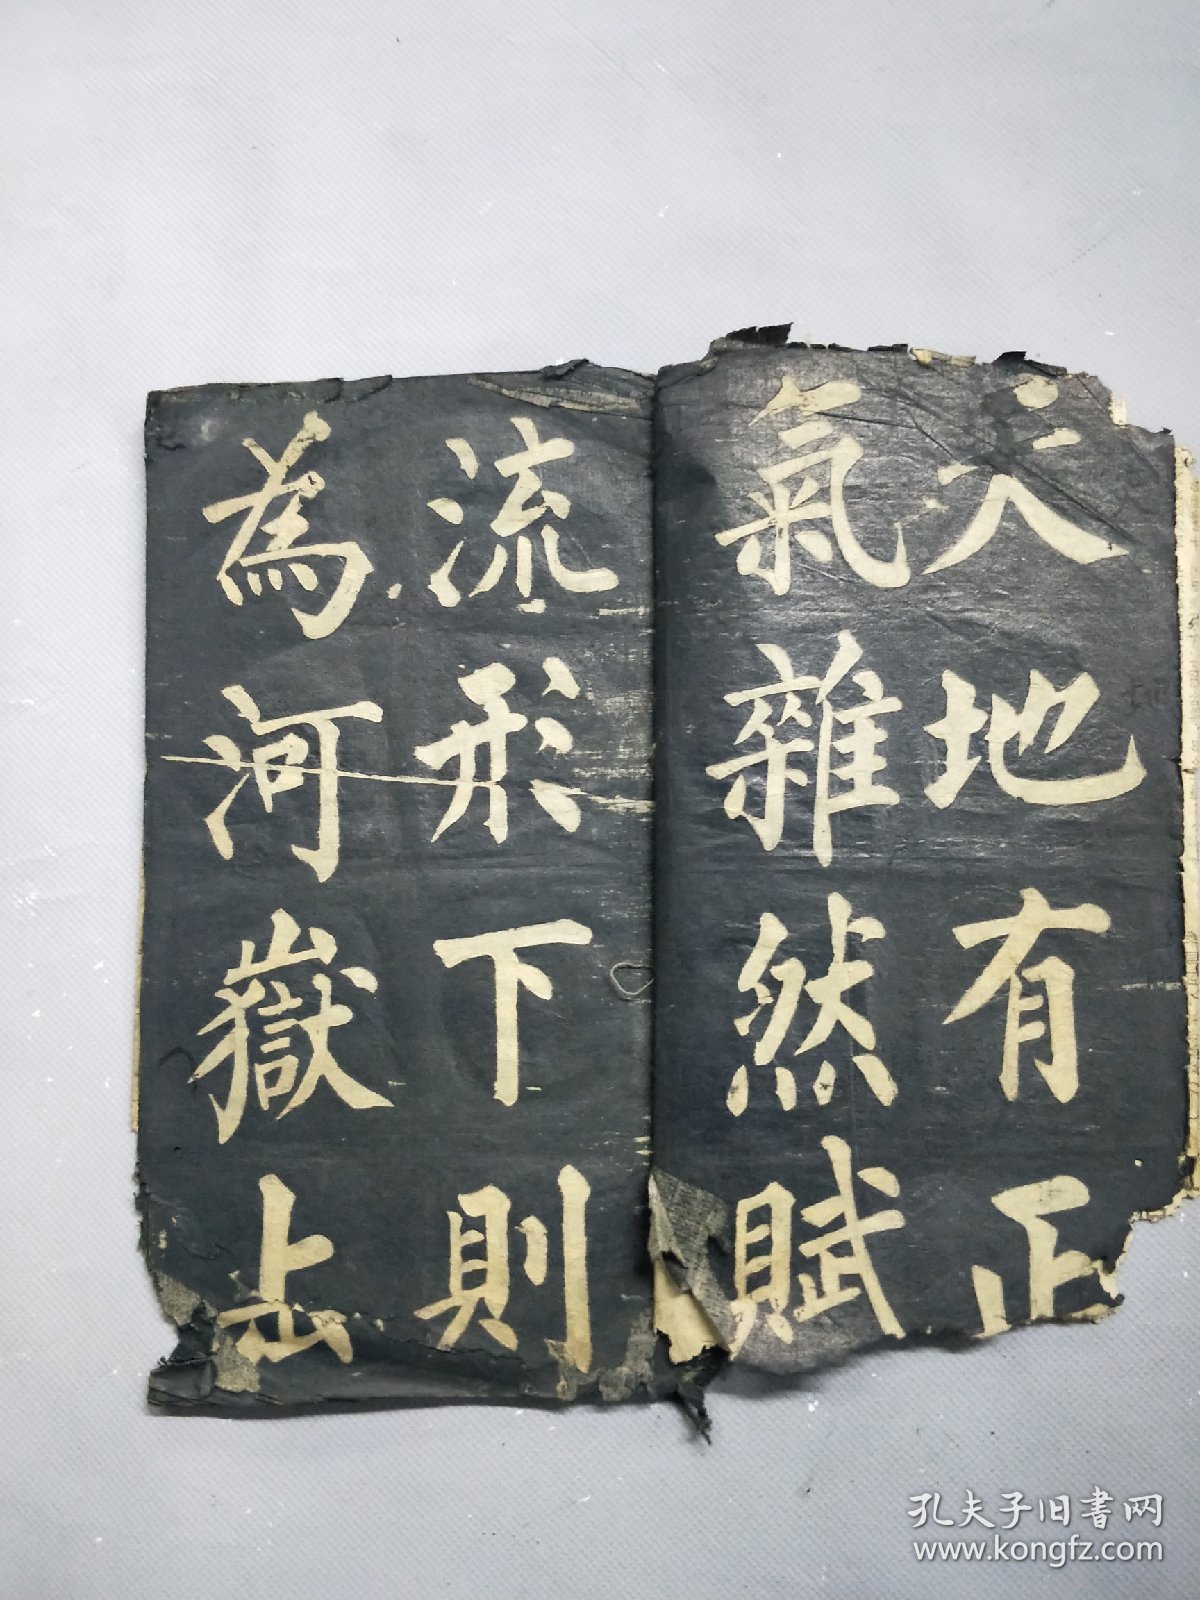 天地有正
氣雜然賦
流形下則
為河嶽上
孔夫子旧書网
www.kongfz.com